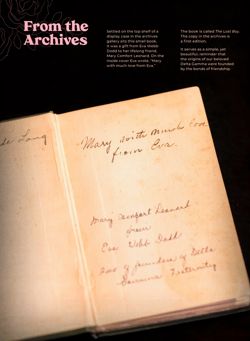 From the
Archives
Settled on the top shelf of a
display case in the archives
gallery sits this small book.
It was a gift from Eva Webb
Dodd to her childhood friend,
Mary Comfort Leonard. On the
inside cover Eva wrote, "Mary
with much love from Eva."
The book is called The Lost Boy.
This copy in the archives is
a first edition.
It serves as a simple, yet
beautiful reminder that
the origins of our beloved
Delta Gamma were founded
by the bonds of friendship.
Mary with much love
from Eva.
Mary Comfort Leonard
from
Eva Webb Dodd
two of founders of Delta
Gamma Fraternity